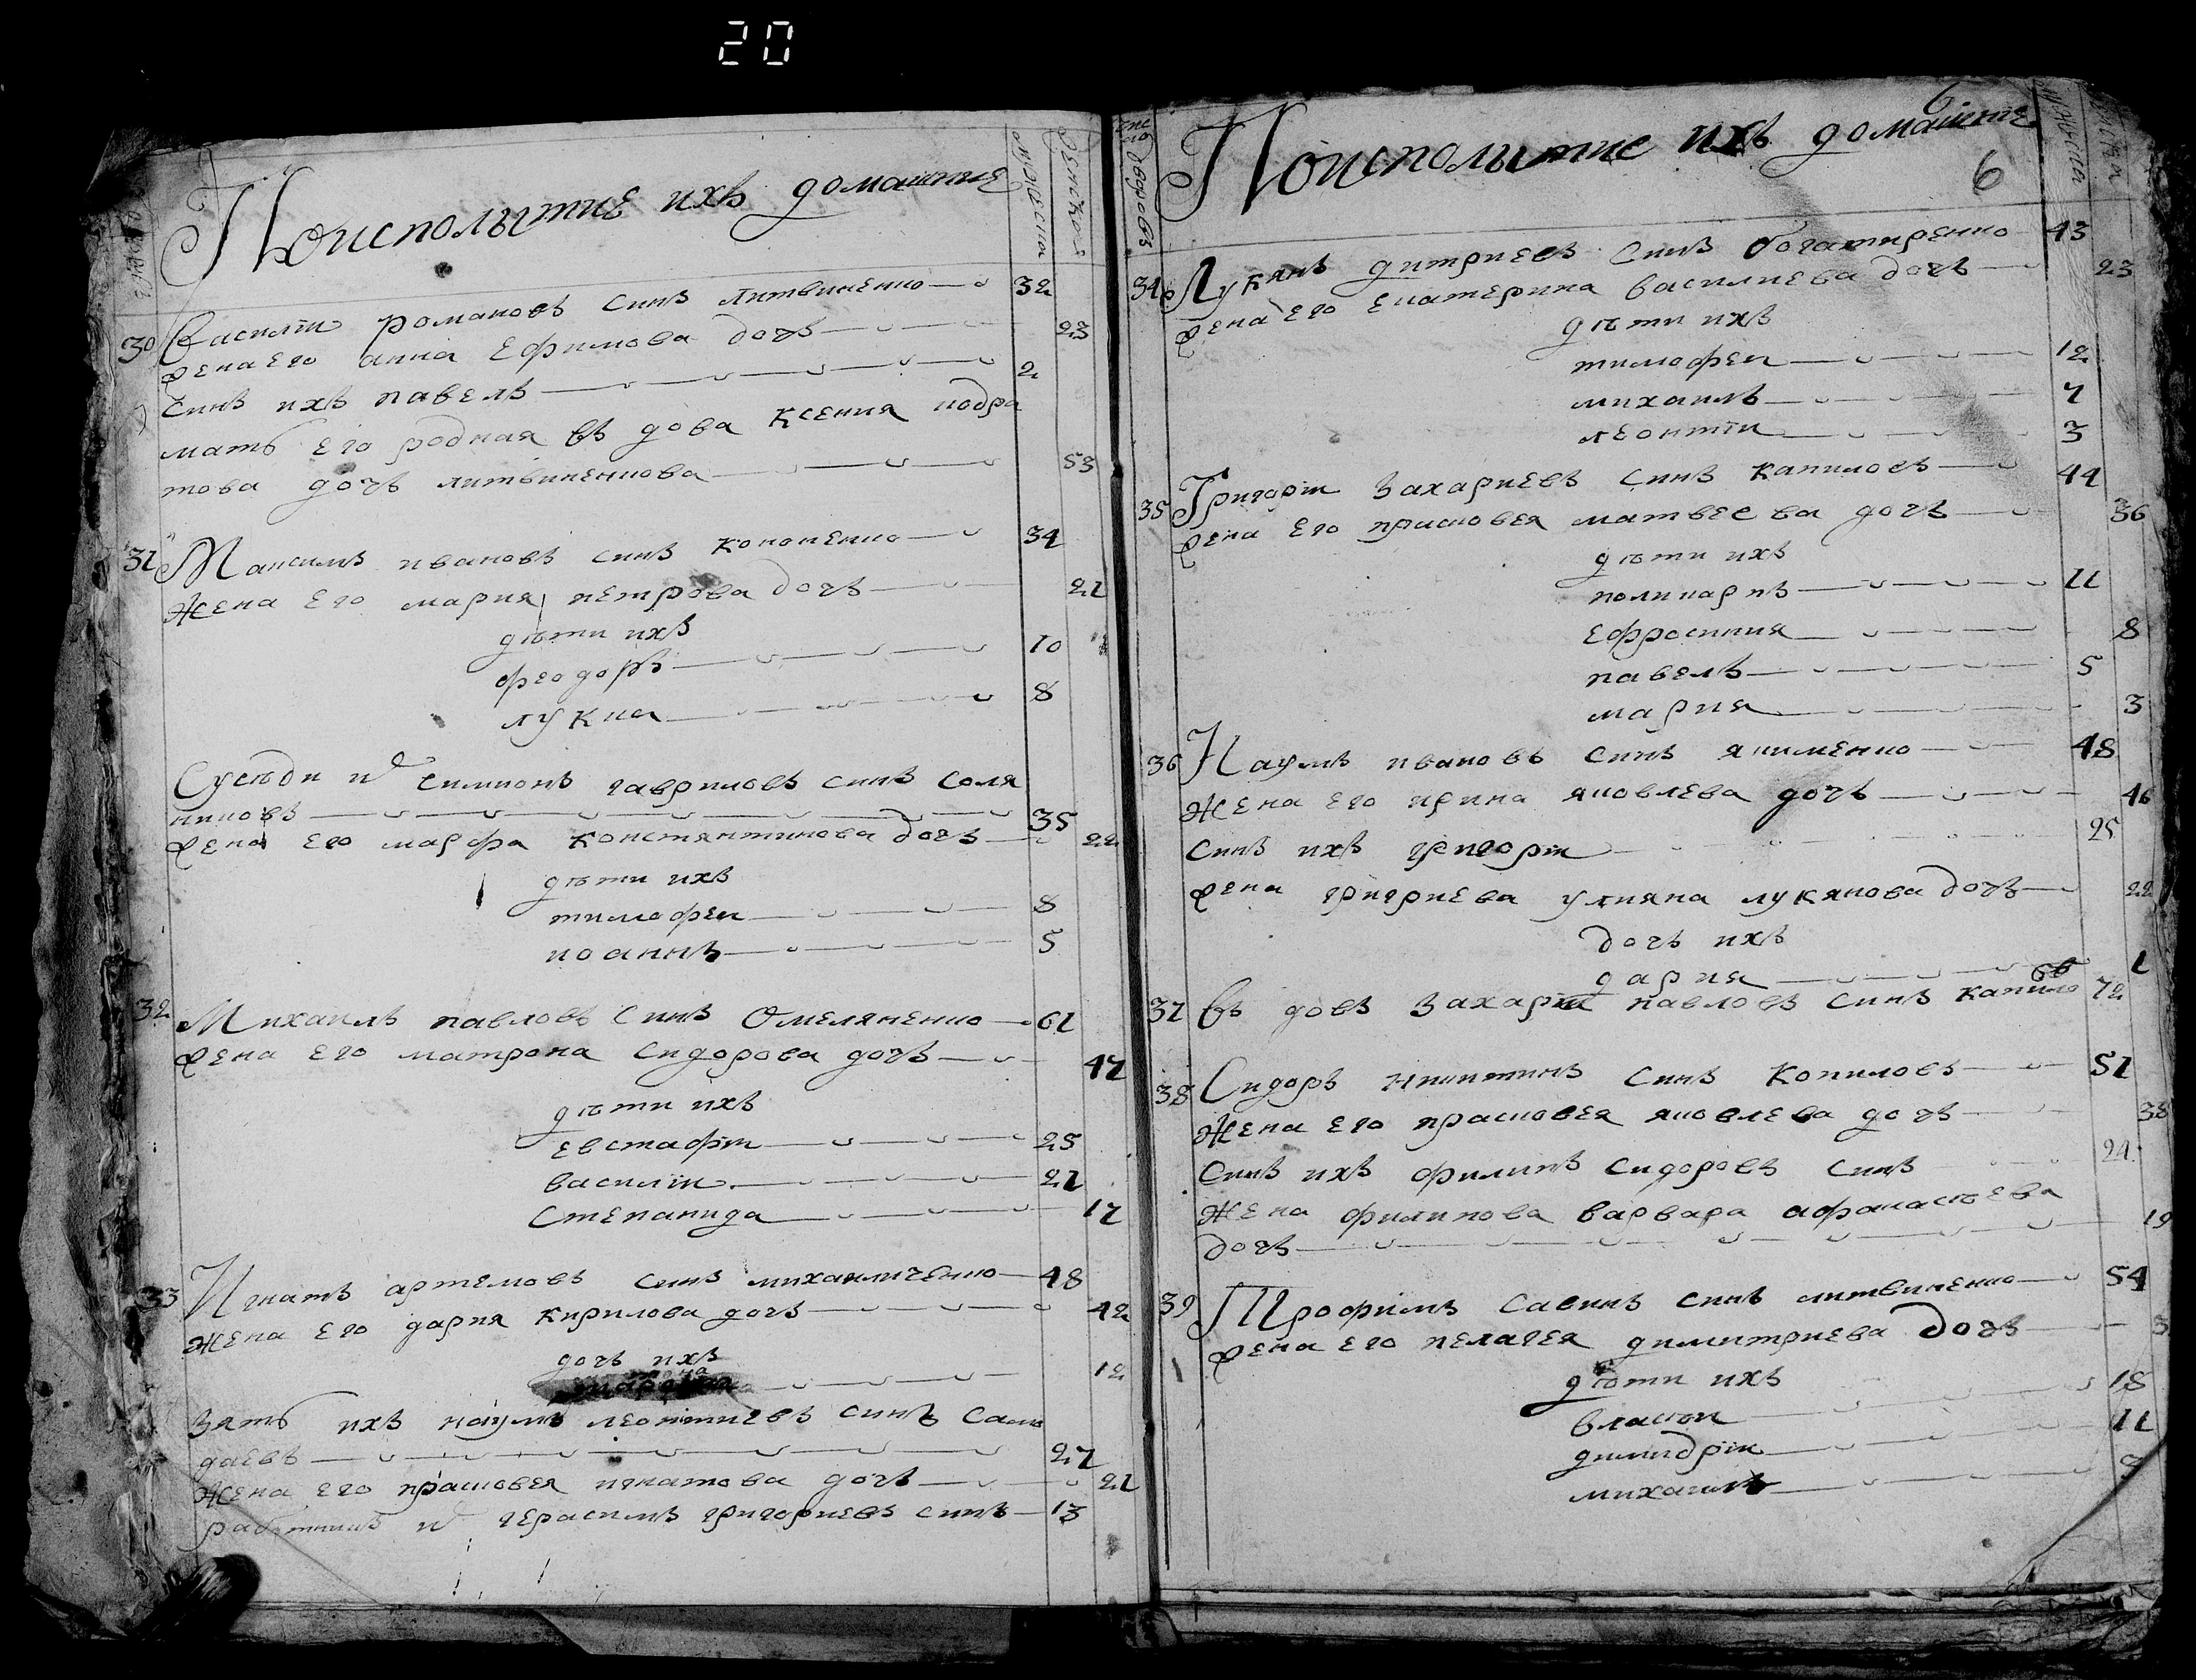 20
Поисполытие ихъ домашние
мужеска
женска
30 Василіи романовъ синъ литвиненко 32
жена его анна Ефримова дочъ 23
Синъ ихъ павелъ 2
мать его родная въ дова Ксения кодра
това дочъ литвиненкова 53
31 Максимъ ивановъ синъ кононенко 34
Жена Его мария петрова дочъ 21
дѣти ихъ
феодоръ 10
лукиа 8
Сусѣди ихъ симионъ гавриловъ синъ соля
никовъ 35
жена его марфа константинова дочъ 22
дѣти ихъ
тимофеи 8
иоаннъ 5
32 Михаилъ павловъ Синъ Омеляненко 61
жена его матрона сидорова дочъ 47
дѣти ихъ
евстафіи 25
василіи 21
Степанида 17
33 Игнатъ артемовъ синъ михаиличенко 48
Жена его дария Кирилова дочъ 42
дочъ ихъ
12
Зять ихъ наумъ леонтиевъ синъ Сама
даевъ 27
Жена его прасковея игнатова дочъ 21
работникъ ихъ герасимъ григориевъ синъ 13
6
Поисполытие ихъ домашние
6
число дворовъ
мужеска
34 Лукянъ дитриевъ Синъ богатиренко 43
жена Его Екатерина василиева дочъ 23
дѣти ихъ
тимофеи 12
михаилъ 7
леонтіи 3
35 Григоріи Захариевъ Синъ капиловъ 44
жена Его прасковея матвеева дочъ 36
дѣти ихъ
поликарпъ 11
Ефросиния 8
павелъ 5
мария 3
36 Наумъ ивановъ синъ якименко 48
Жена его ирина яковлева дочъ 46
Синъ ихъ григоріи 25
жена григриева улияна лукянова дочъ 22
дочъ ихъ
дария 1
37 Въ довъ Захаріи павловъ Синъ капило 72
въ
38 Сидоръ никитинъ Синъ Копиловъ 51
Жена Его прасковея яковлева дочъ 38
Синъ ихъ филипъ Сидоровъ Синъ 24
Жена филипова варвара афанасѣева
дочъ 19
39 Трофимъ Савинъ синъ литвиненко 54
жена Его пелагея димитриева Дочъ 3
дѣти ихъ
власіи 18
димидріи 11
михаилъ